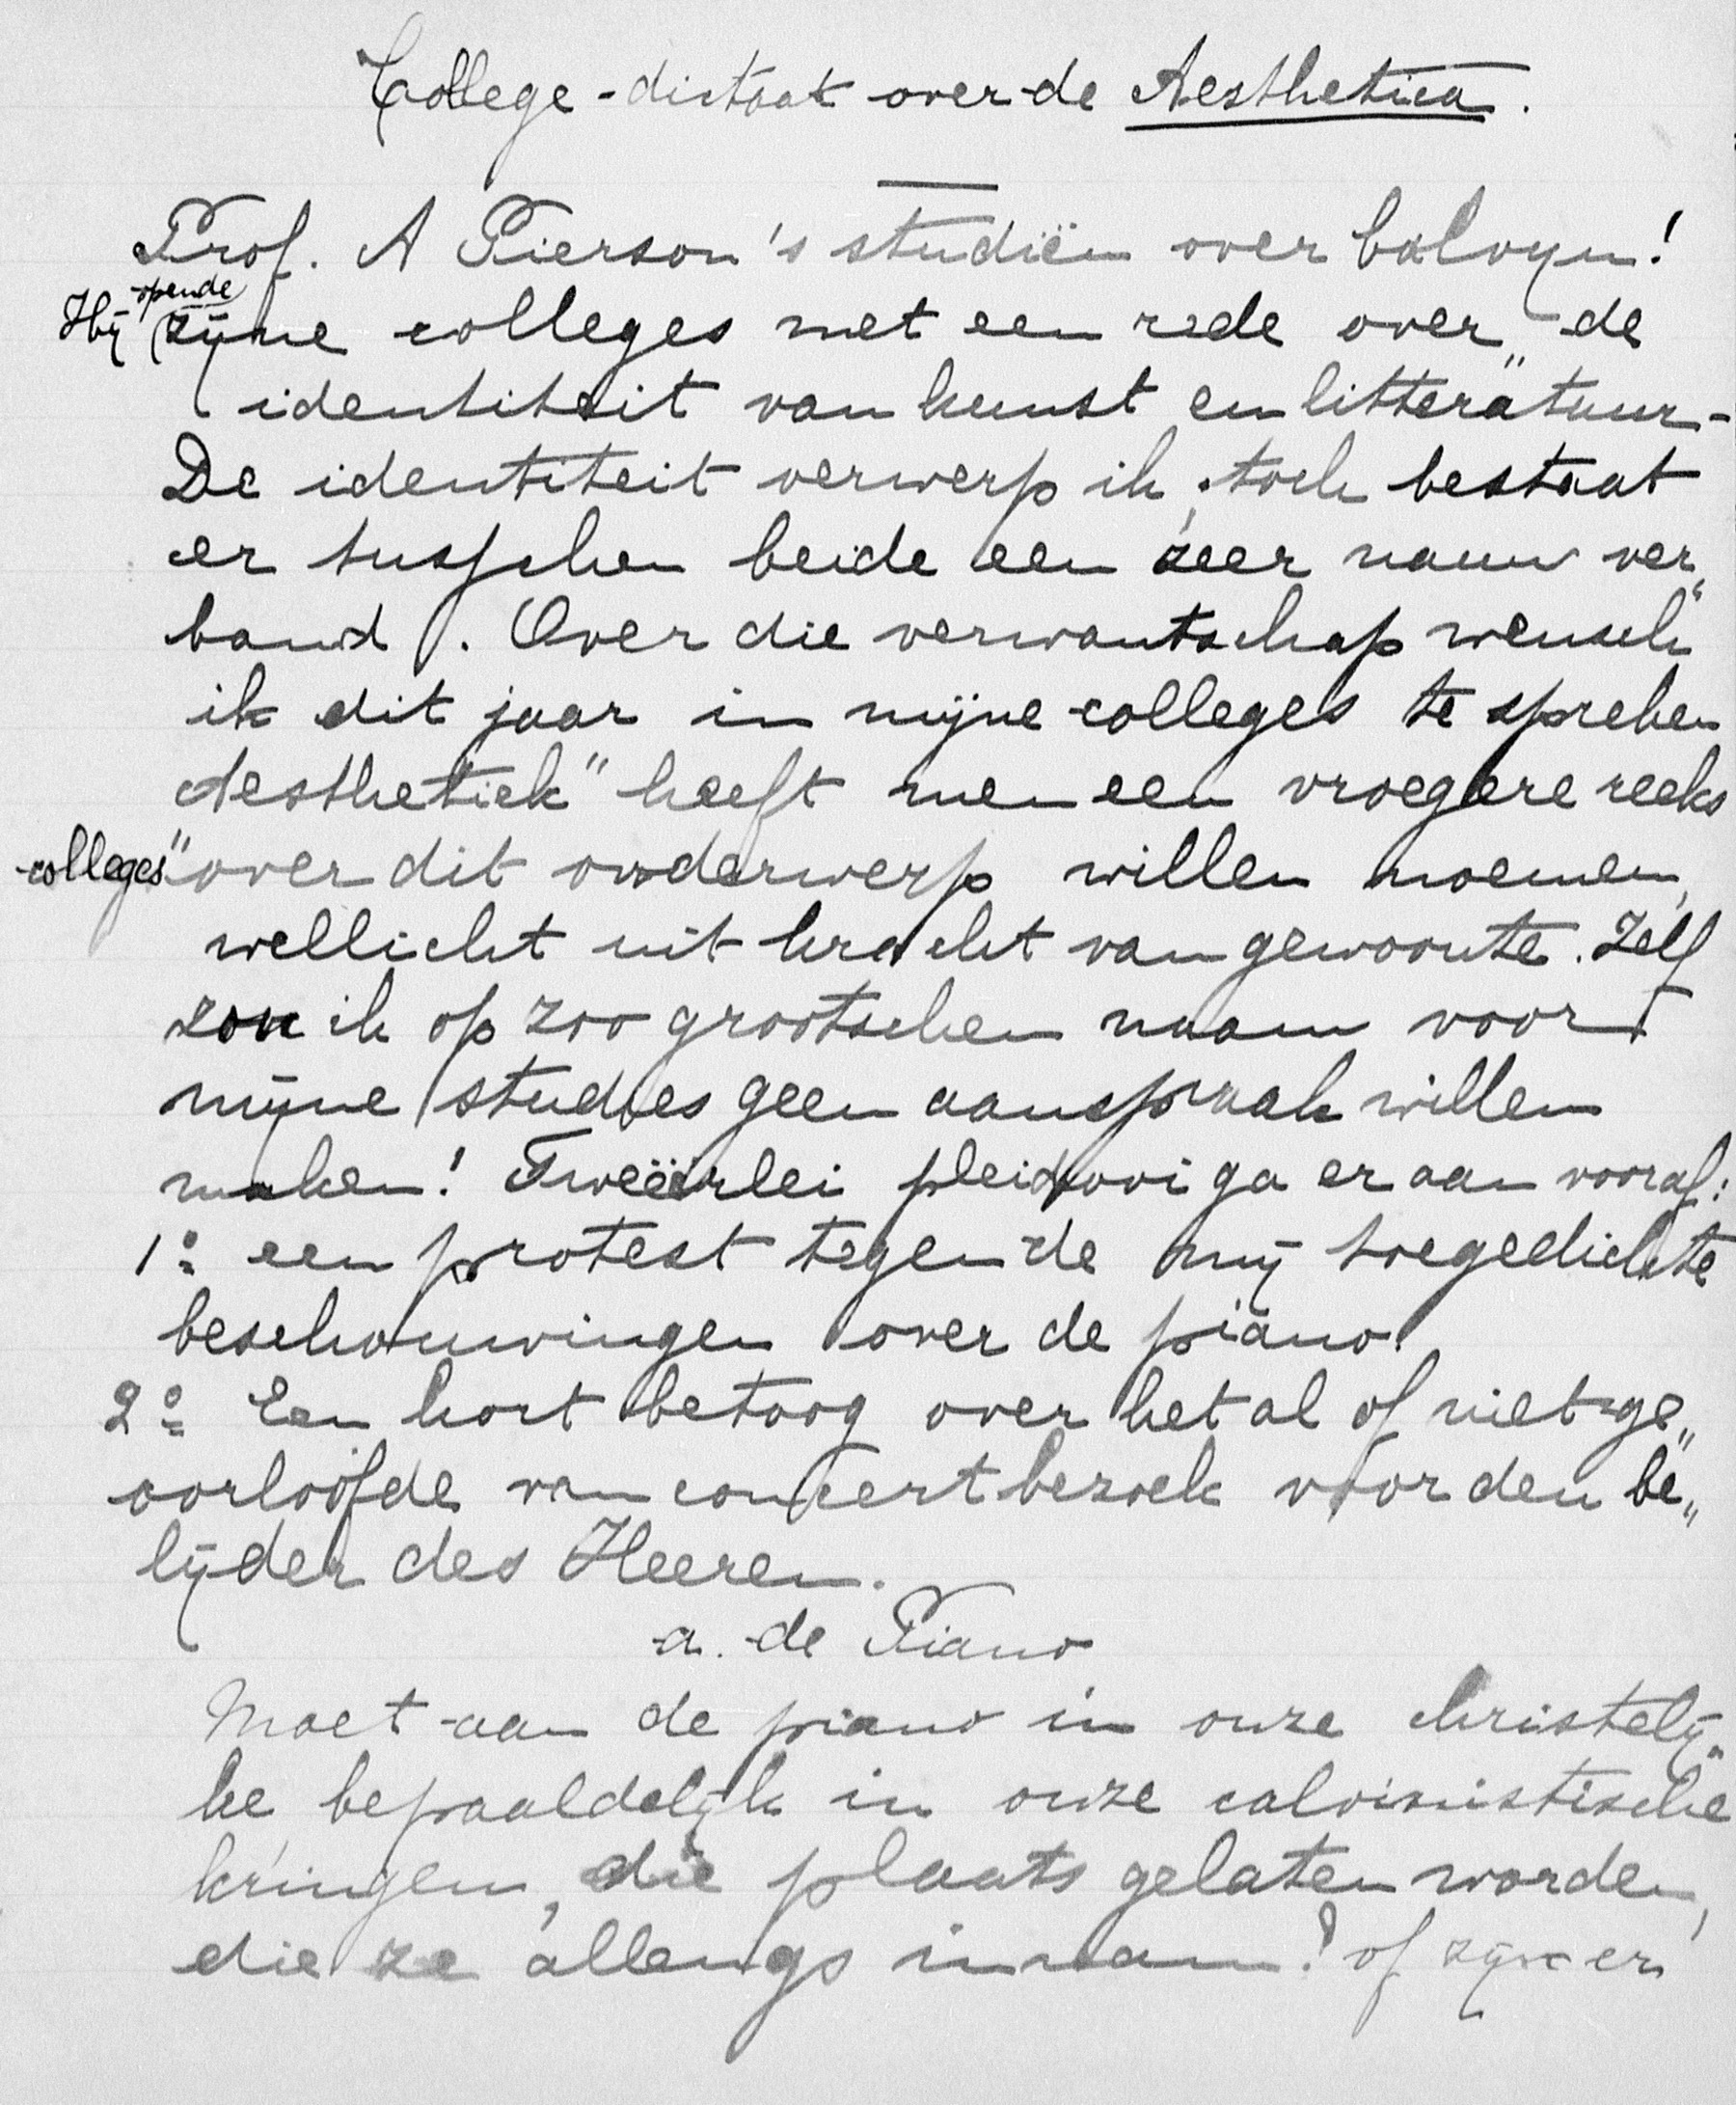 College-dictaat over de Aesthetica.
Prof. A Pierson's studiën over Calvyn!
Hij opende zijne colleges met een rede over „de
identiteit van kunst en litteratuur-
De identiteit verwerp ik, toch bestaat
er tusschen beide een zeer nauw ver„
band. Over die verwantschap wensch
ik dit jaar in mijne colleges te spreken
Aesthetiek" heeft men een vroegere reeks
colleges" over dit onderwerp willen noemen,
wellicht uit kracht van gewoonte. Zelf
zou ik op zoo grootschen naam voor
mijne studies geen aanspraak willen
maken! Tweëerlei pleidooi ga er aan vooraf:
1° een protest tegen de mij toegedichte
beschouwingen over de piano
2° Een kort betoog over het al of niet ge„
oorloofde van concertbezoek voor den be„
lijder des Heeren.
a. de Piano
Moet aan de piano in onze christelij„
ke bepaaldelijk in onze calvinistische
kringen, die plaats gelaten worden,
die ze allengs innam? of zijn er